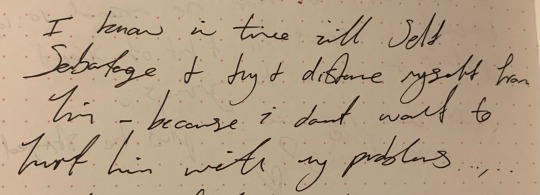 I know in time ill Self
Sabotage & try & distance myself from
him - because i dont want to
hurt him with my problems.....